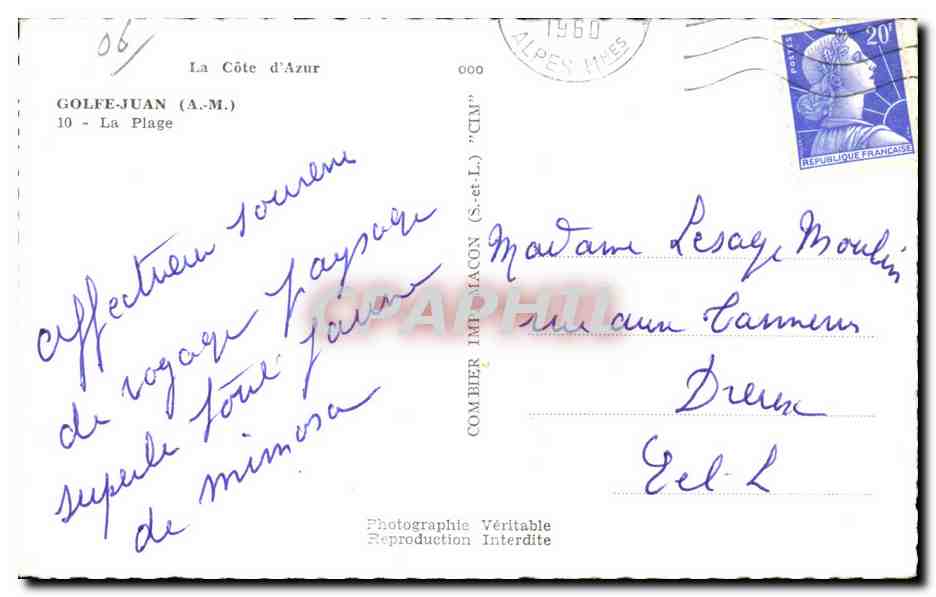 06
La Côte d'Azur
GOLFE-JUAN (A.-M.)
10 - La Plage
affectueux souvenir
de voyage paysage
superbe tout jaune
de mimosa
ooo
COMBIER IMP. MACON (S.-et-L.) "CIM"
1960
ALPES MMES
POSTES
20F
REPUBLIQUE FRANÇAISE
Madame Lesage Moulin
rue aux Tanneurs
Dreux
E et L
CPAPHIL
Photographie Véritable
Reproduction Interdite